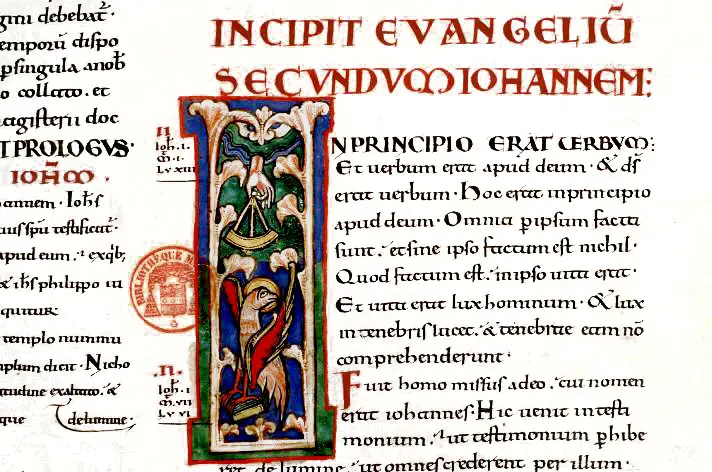 gni debebat.
emporū dispo
psingula anob
o collato. et
agisterii doc
T PROLOGVS.
IOHM̄ .
annem. Ioh̄s
uiꝰspū testificat.
apud eum. & exqb;
& ih̄s philippo iu
quitur.
templo nummu
mplum dicit. Nicho
titudine exaltatō. &
que
de lumine.
INCIPIT EVANGELIŪ
SECVNDVM IOHANNEM:
BIBLIOTHEQUE
n
Ioh. I.
m. I.
Lvxiii
.n.
Ioh. I
m. vii
Lv vi
IN PRINCIPIO ERAT VERBVM:
Et uerbum erat apud deum. & ds̄
erat uerbum. Hoc erat inprincipio
apud deum. Omnia p̄ipsum facta
sunt. & sine ipso factum est nichil.
Quod factum est. inipso uita erat.
Et uita erat lux hominum. & lux
in tenebris lucet. & tenebrae eam nō
comprehenderunt.
Fuit homo missus adeo. cui nomen
erat iohannes. Hic uenit intesti
monium. ut testimonium p̄hibe
ret de lumine. ut omnes crederent per illum.